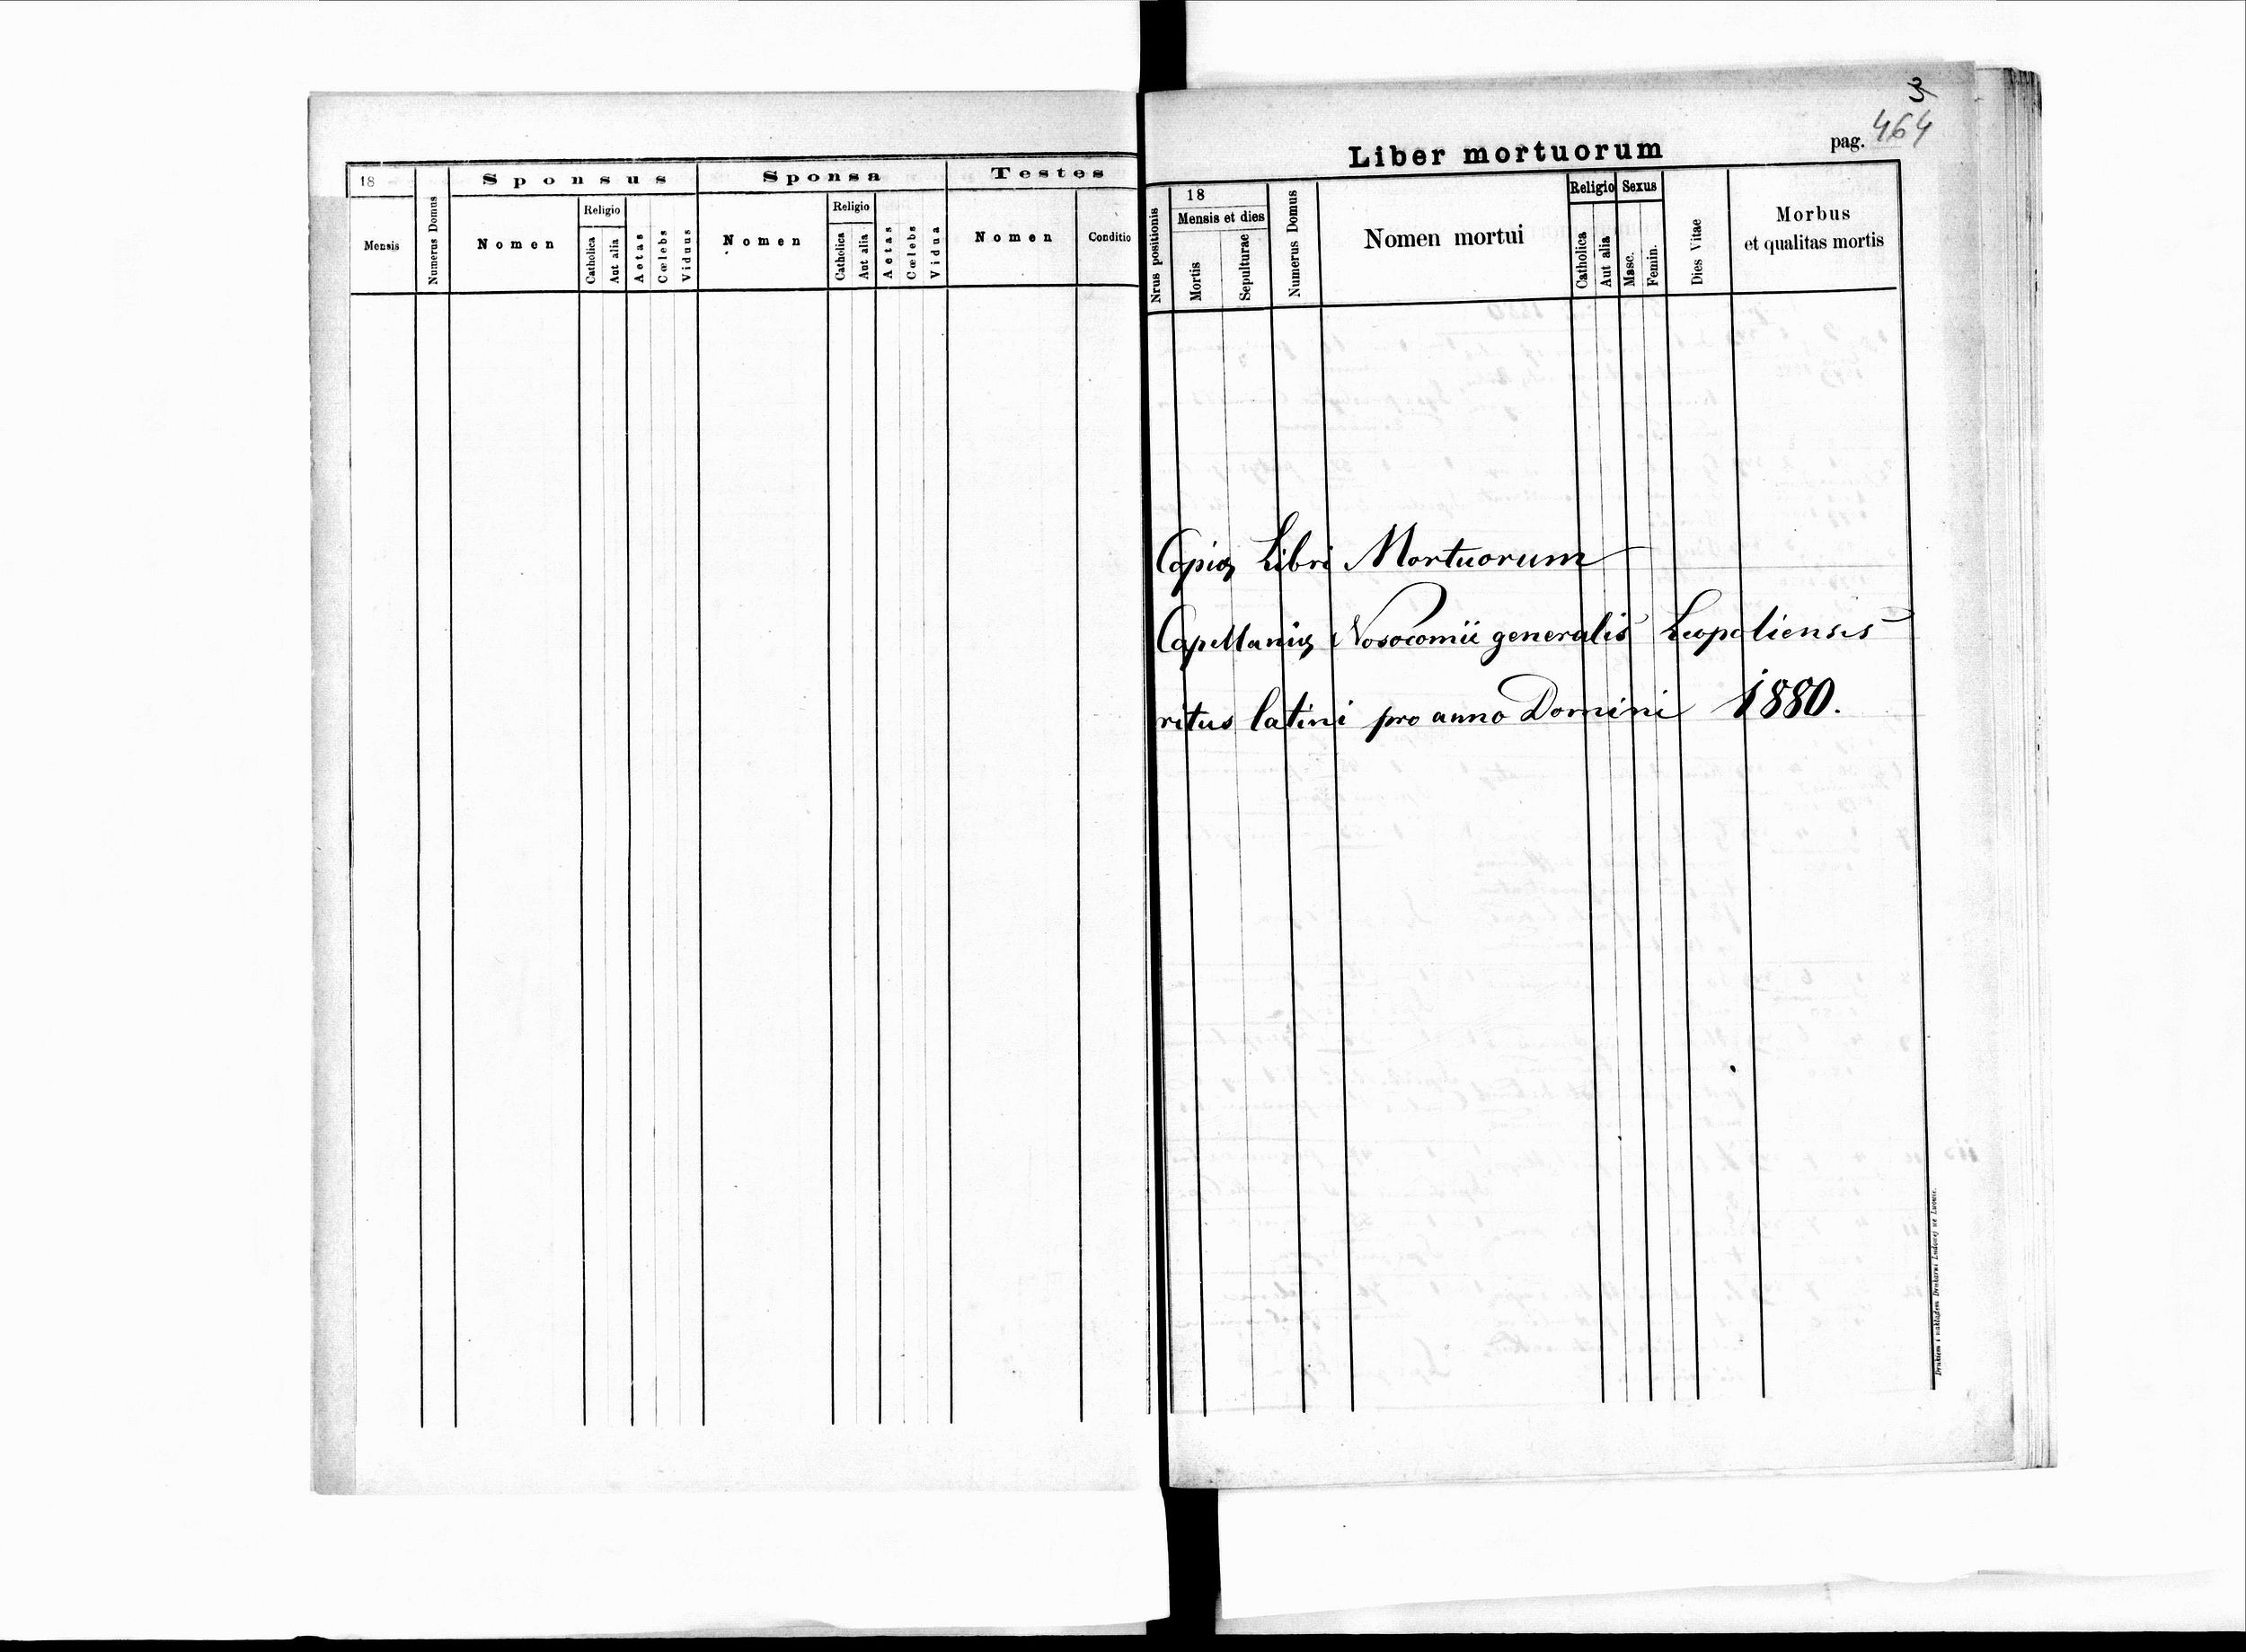 18
Sponsus
Sponsa
Testes
Mensis
Numerus Domus
Nomen
Religio
Catholica
Aut alia
Aetas
Cœlebs
Viduus
Nomen
Religio
Catholica
Aut alia
Aetas
Cœlebs
Vidua
Nomen
Conditio
3
464
Liber mortuorum
pag.
Nrus positionis
18
Mensis et dies
Mortis
Sepulturae
Numerus Domus
Nomen mortui
Religio
Catholica
Aut alia
Sexus
Masc.
Femin.
Dies Vitae
Morbus
et qualitas mortis
Copia Libri Mortuorum
Capellaniæ Nosocomii generalis Leopoliensis
ritus latini pro anno Domini 1880.
Drukiem i nakładem Drukarni Ludowej we Lwowie.